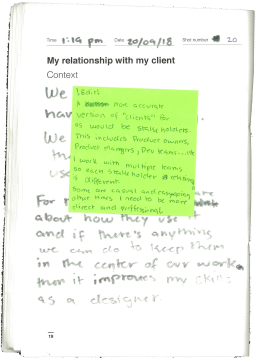 Time 1:19 pm Date 20/09/18 Shot number 20
My relationship with my client
Context
We
hav
We
th
use
Edit:
A more accurate
version of "clients" for
us would be stakeholders.
This includes Product owners,
Product mangers, Dev teams...etc
I work with multiple teams,
so each stakeholder relationship
is different.
Some are casual and easygoing,
other times I need to be more
direct and professional.
For are
about how they use it
and if there's anything
we can do to keep them
in the center of our work
then it improves my skills
as a designer.
18